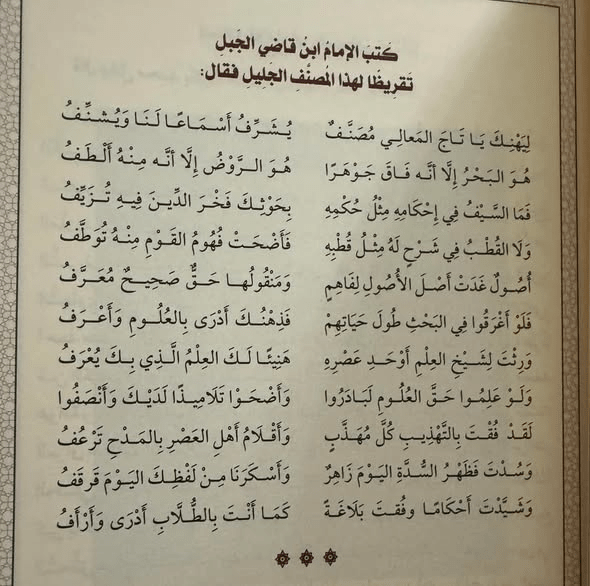 كَتبَ الإمامُ ابنُ قاضي الجَبلِ
تَقرِيظًا لهذا المُصنَّفِ الجَلِيلِ فقالَ:
لِيَهْنِكَ يَا تَاجَ المَعَالِي مُصَنَّفٌ يُشَرِّفُ أَسْمَاعًا لَنَا وَيُشَنِّفُ
هُوَ البَحْرُ إِلَّا أَنَّه فَاقَ جَوْهَرًا هُوَ الرَّوْضُ إِلَّا أَنَّه مِنْهُ أَلْطَفُ
فَمَا السَّيْفُ فِي إِحْكَامِهِ مِثْلُ حُكْمِهِ بِحَوْثِكَ فَخْرَ الدِّينَ فِيهِ تُزَيِّفُ
وَلَا القُطْبُ فِي شَرْحٍ لَهُ مِثْلُ قُطْبِهِ فَأَضْحَتْ فُهُومُ القَوْمِ مِنْهُ تُوَظَّفُ
أُصُولٌ غَدَتْ أَصْلَ الأُصُولِ لِفَاهِمٍ وَمَنْقُولُها حَقٌّ صَحِيحٌ مُعَرَّفُ
فَلَوْ أَغْرَقُوا فِي البَحْثِ طُولَ حَيَاتِهِمْ فَذِهْنُكَ أَدْرَى بِالعُلُومِ وَأَعْرَفُ
وَرِثْتَ لِشَيْخِ العِلْمِ أَوْحَدِ عَصْرِهِ هَنِيئًا لَكَ العِلْمُ الَّذِي بِكَ يُعْرَفُ
وَلَوْ عَلِمُوا حَقَّ العُلُومِ لَبَادَرُوا وَأَضْحَوْا تَلَامِيذًا لَدَيْكَ وَأَنْصَفُوا
لَقَدْ فُقْتَ بِالتَّهْذِيبِ كُلَّ مُهَذَّبٍ وَأَقْلَامُ أَهْلِ العَصْرِ بِالمَدْحِ تَرْعُفُ
وَسُدْتَ فَظَهْرُ السُّدَّةِ اليَوْمَ زَاهِرٌ وَأَسْكَرَنَا مِنْ لَفْظِكَ اليَوْمَ قَرقَفُ
وَشَيَّدْتَ أَحْكَامًا وفُقتَ بَلَاغَةً كَمَا أَنْتَ بِالطُّلَّابِ أَدْرَى وَأَرْأَفُ